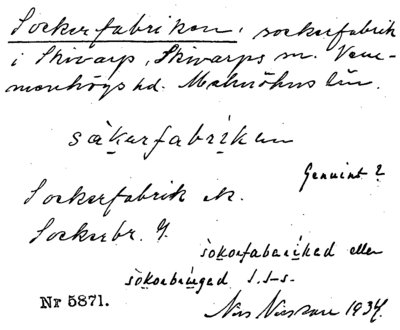 Sockerfabriken, sockerfabrik
i Skivarp, Skivarps sn. Vem-
menhögs hd. Malmöhus län.
såkarfabriken
Genuint?
Sockerfabrik ek.
Sockerbr. G.
sokorfabrikad eller
sokorbrúgad s. s-s.
Nr 5871.
Nils Nilsson 1934.